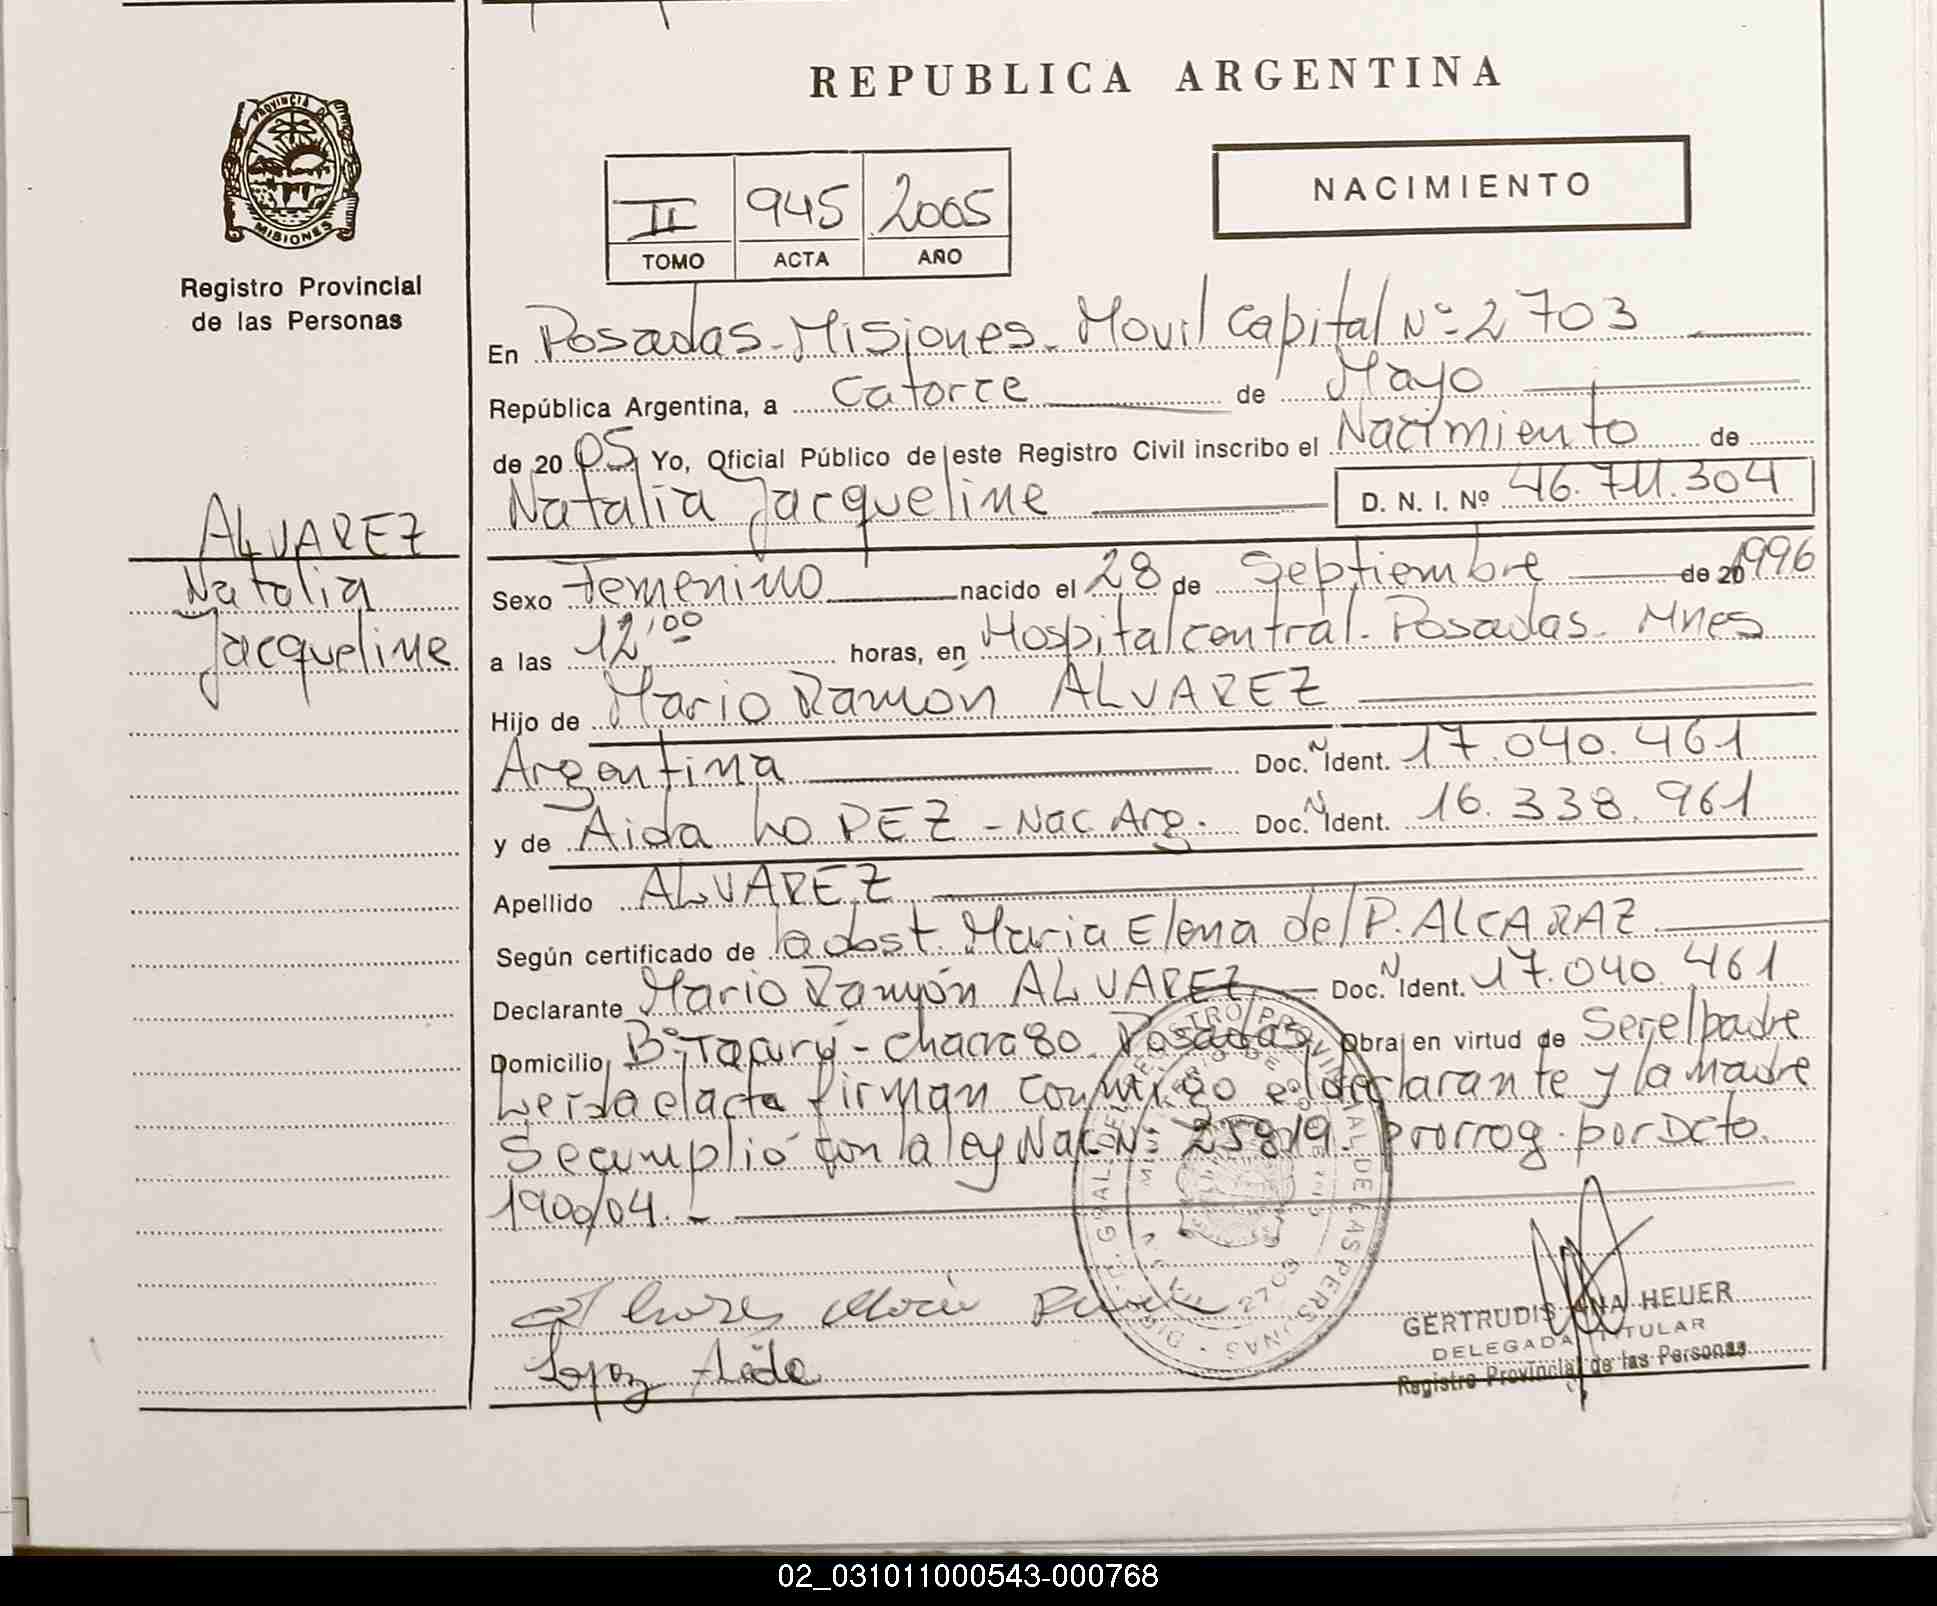 REPUBLICA ARGENTINA
PROVINCIA DE
MISIONES
Registro Provincial
de las Personas
II 945 2005
TOMO ACTA AÑO
NACIMIENTO
En Posadas - Misiones - Movil Capital Nº 2703
República Argentina, a Catorce de Mayo
de 2005 Yo, Oficial Público de este Registro Civil inscribo el Nacimiento de
Natalia Jacqueline D. N. I. Nº 46.711.304
ALVAREZ
Natalia
Jacqueline
Sexo Femenino nacido el 28 de Septiembre de 20 1996
a las 12,00 horas, en Hospital central - Posadas - Mnes
Hijo de Mario Ramón ALVAREZ
Argentina Doc. N Ident. 17.040.461
y de Aida LOPEZ - Nac Arg. Doc. N Ident. 16.338.961
Apellido ALVAREZ
Según certificado de la obst. Maria Elena del P. ALCARAZ
Declarante Mario Ramón ALVAREZ Doc. N Ident. 17.040.461
Domicilio Bº Tacurú - Chacra 80 Posadas Obra en virtud de Ser el padre
Leida el acta firman conmigo el declarante y la madre
Se cumplió con la ley Nac Nº 25819. Prorrog. por Dcto.
1900/04. -
Lopez Aida
GERTRUDIS ANA HEUER
DELEGADA TITULAR
Registro Provincial de las Personas
02_031011000543-000768